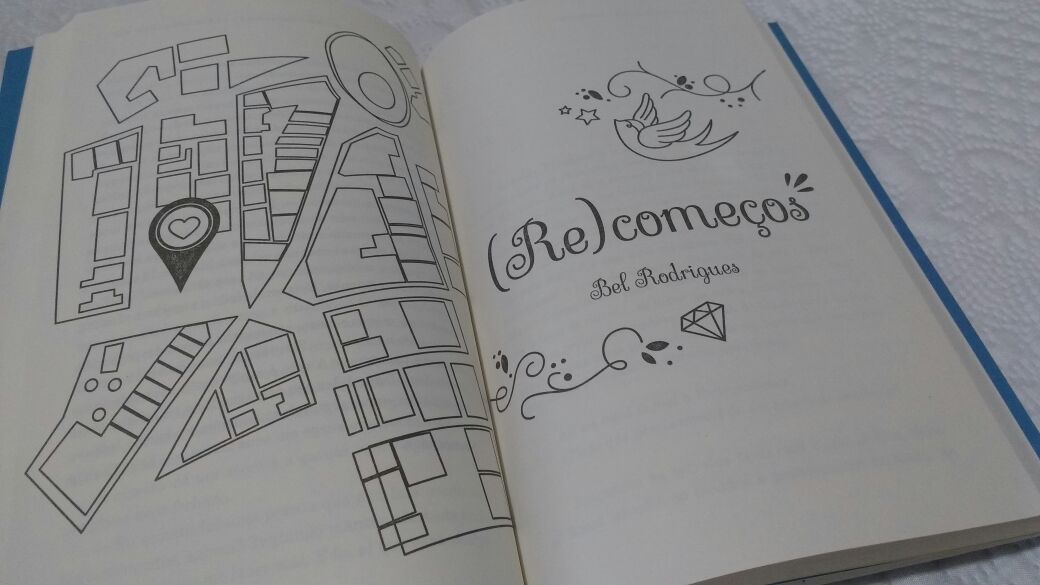 (Re)começos
Bel Rodrigues